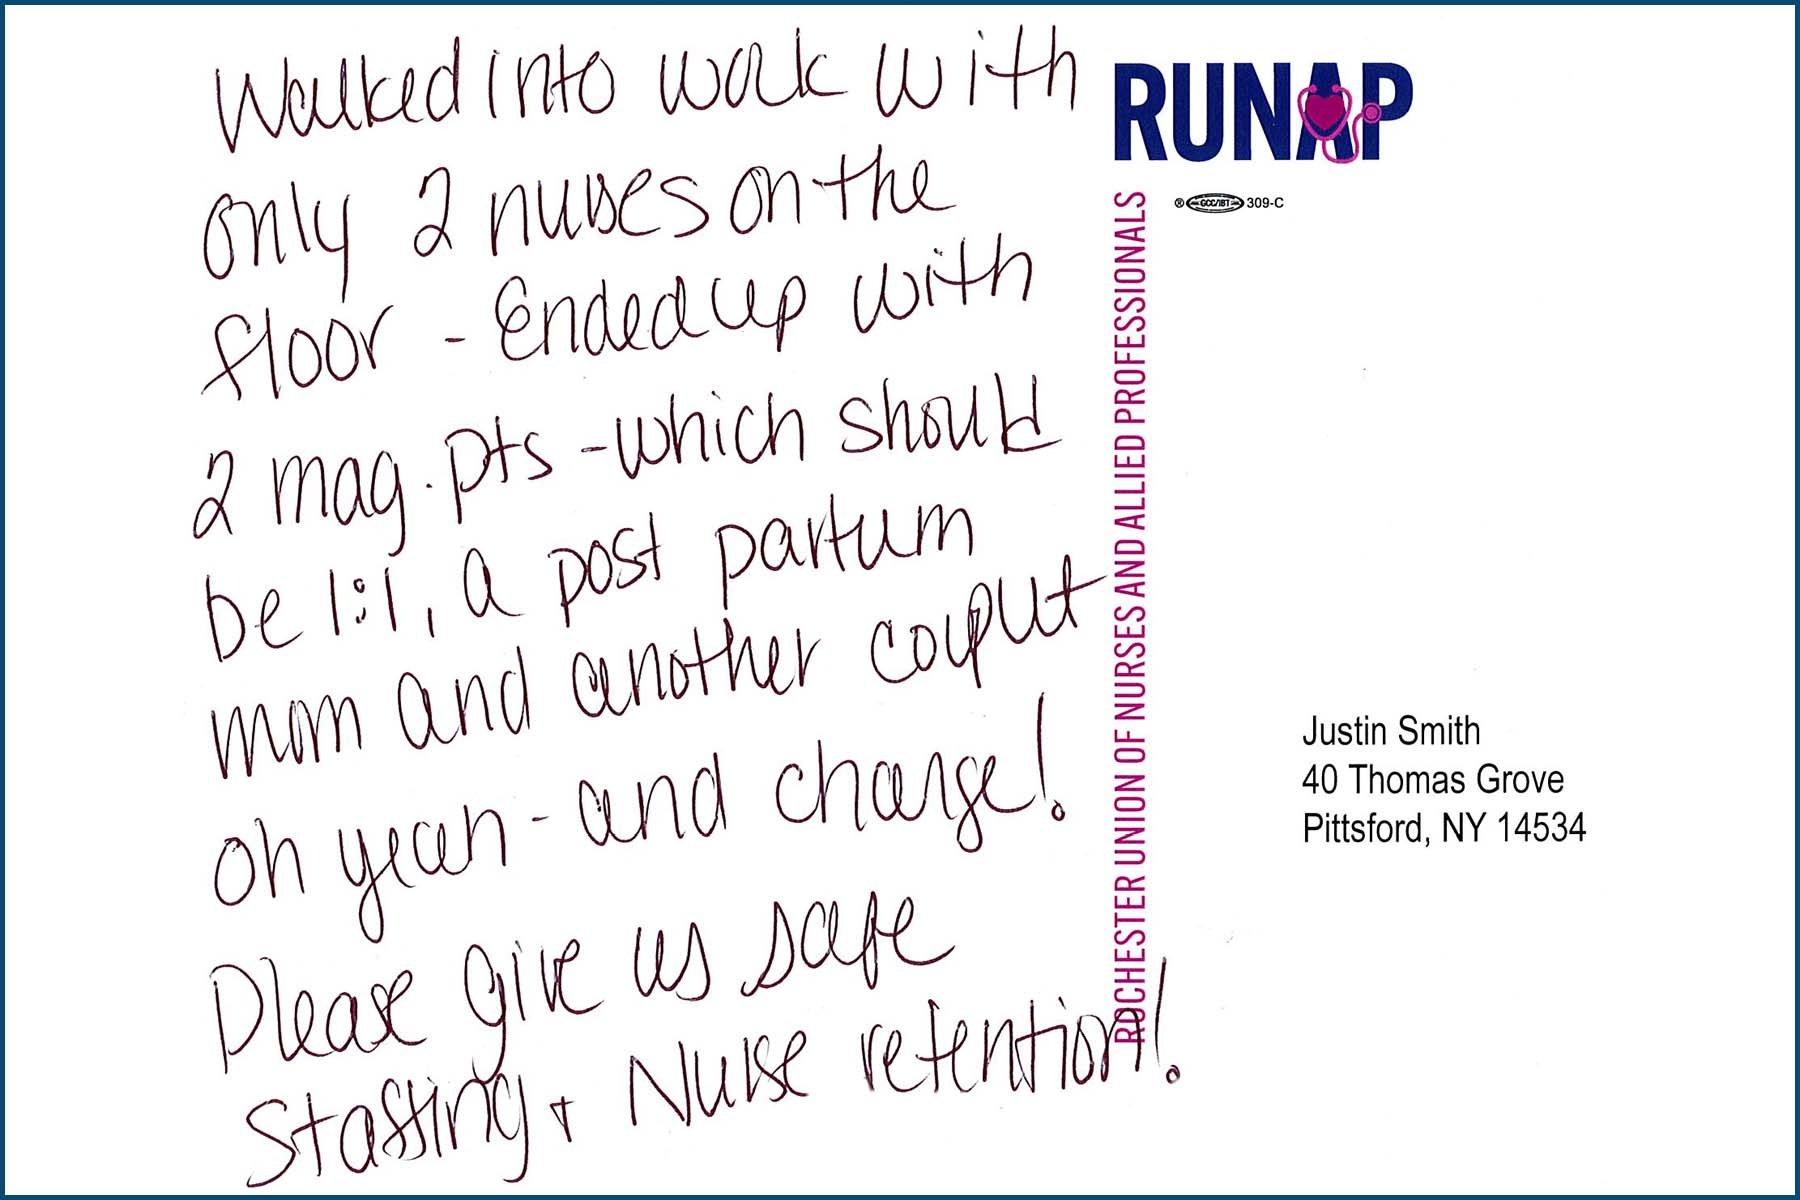 Walked into work with
only 2 nurses on the
floor - Ended up with
2 mag. pts - which should
be 1:1, a post partum
mom and another couplet
oh yeah - and charge!
Please give us safe
Staffing + Nurse retention!
RUNAP
® GCC/IBT 309-C
ROCHESTER UNION OF NURSES AND ALLIED PROFESSIONALS
Justin Smith
40 Thomas Grove
Pittsford, NY 14534